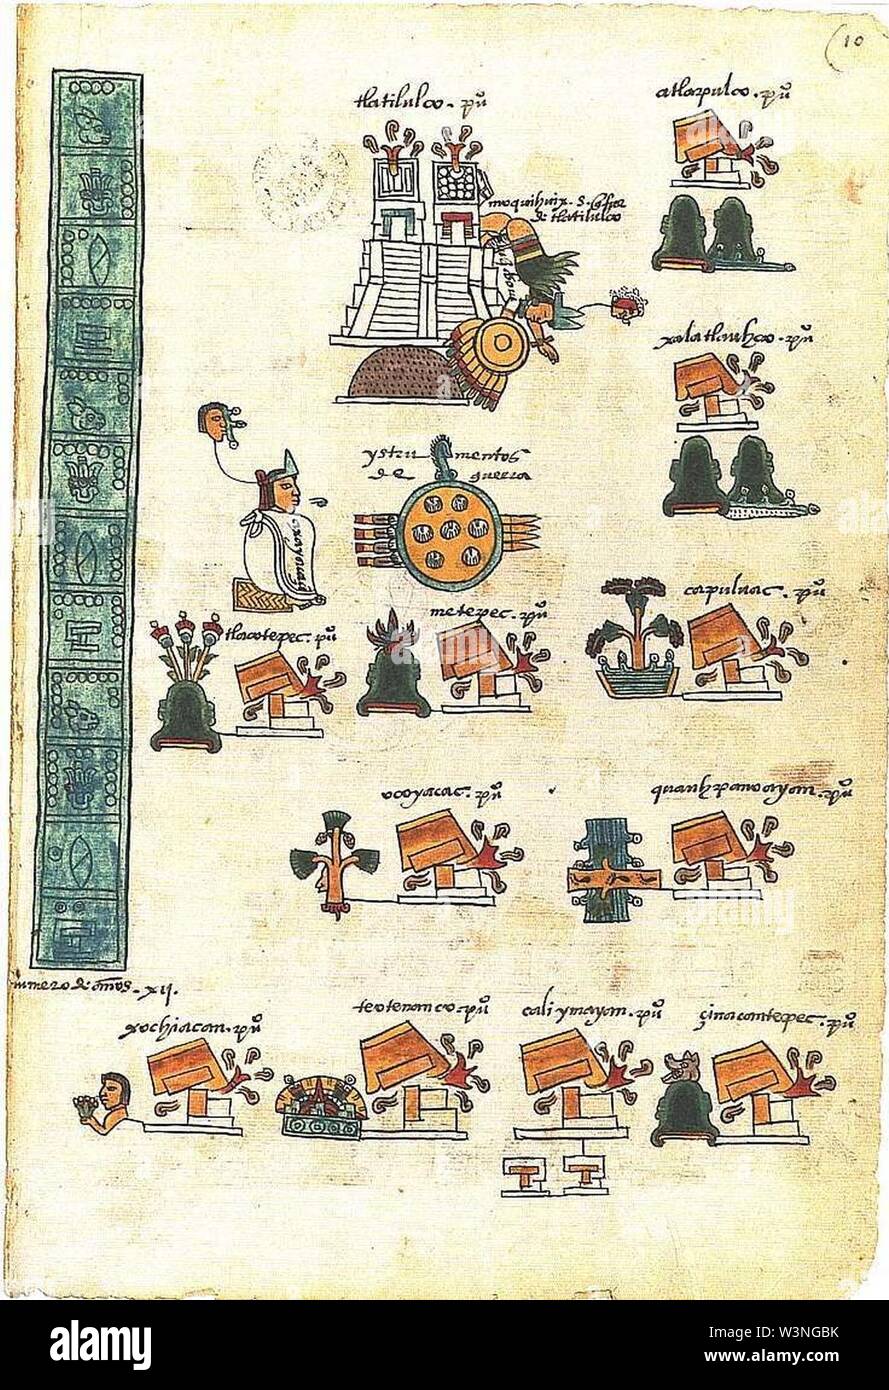 10
tlatilulco. pu̅
atlapulco. pu̅
moquihuix. S.
de tlatilulco
xalatlauhco. pu̅
ystru mentos
de guerra
axayacaçi
capuluac. pu̅
metepec. pu̅
tlacotepec. pu̅
ocoyacac. pu̅
quauhpanoayan. pu̅
numero de años. xii.
xochiacan. pu̅
teotenanco. pu̅
caliymayan. pu̅
çinacantepec. pu̅
alamy
alamy
Image ID: W3NGBK
www.alamy.com